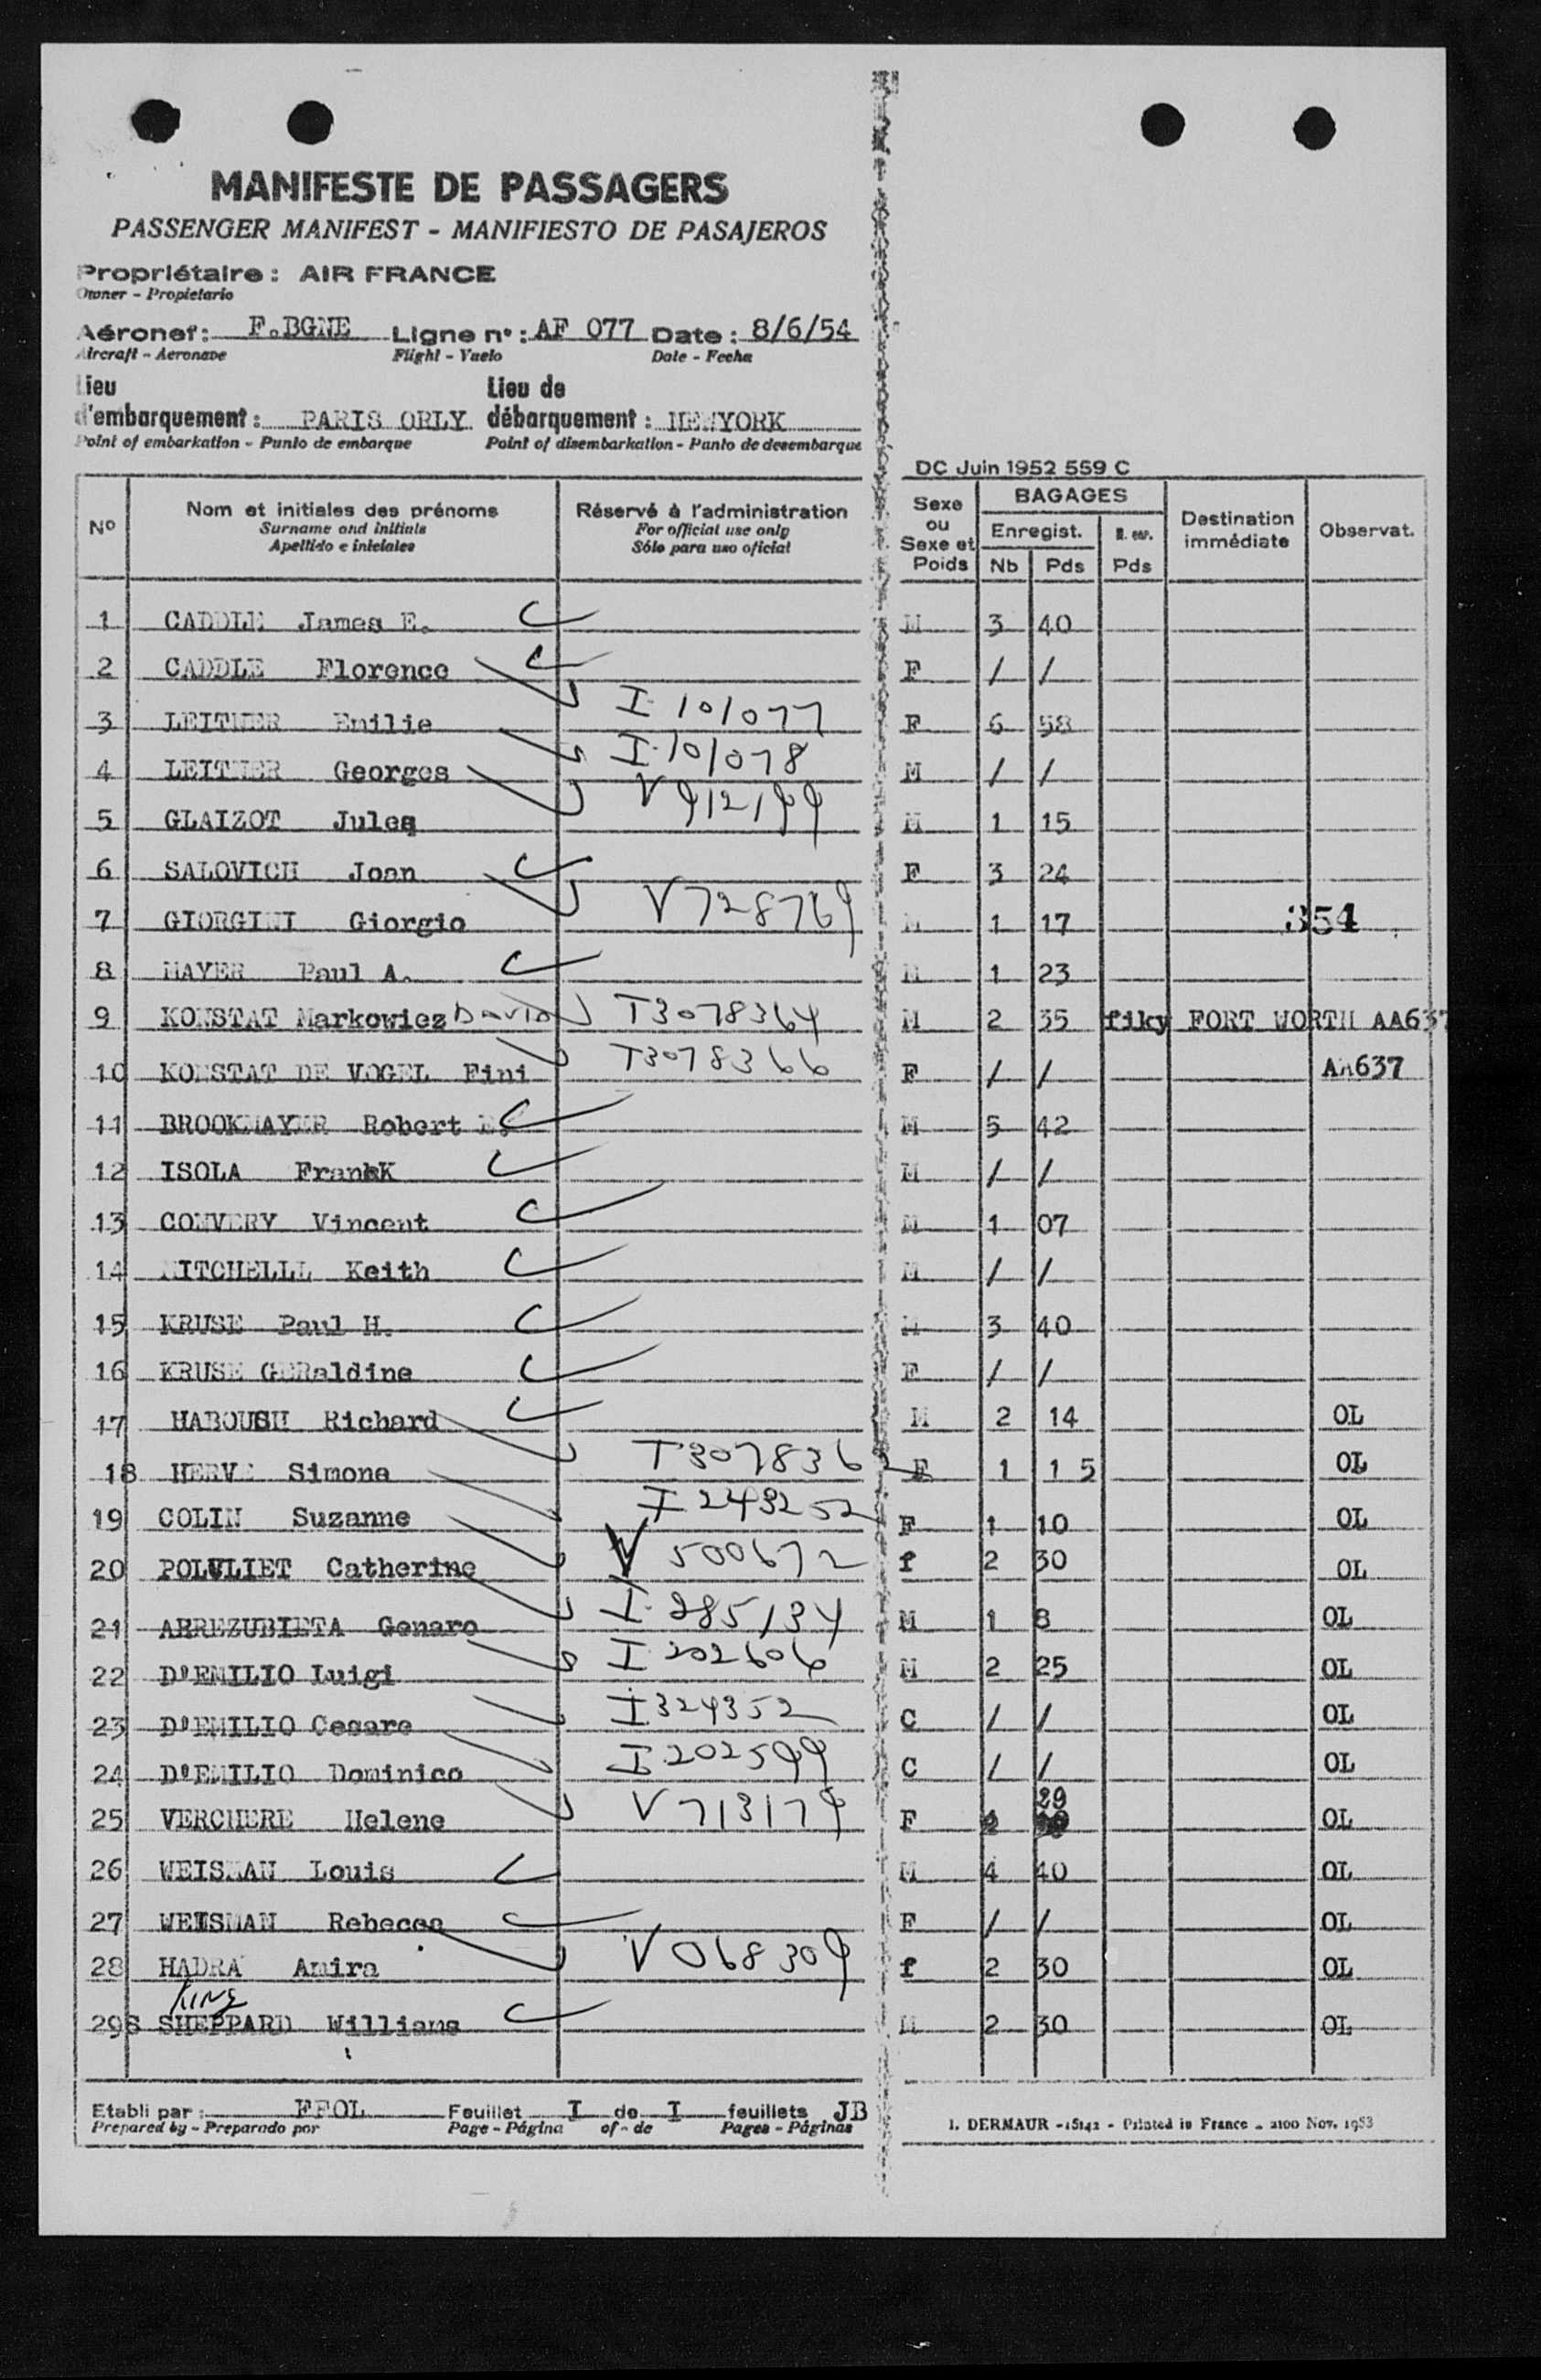 MANIFESTE DE PASSAGERS
PASSENGER MANIFEST - MANIFIESTO DE PASAJEROS
Propriétaire : AIR FRANCE
Owner - Propietario
Aéronef : F.BGNE Ligne n° : AF 077 Date : 8/6/54
Aircraft - Aeronave Flight - Vuelo Date - Fecha
Lieu Lieu de
d'embarquement : PARIS ORLY débarquement : NEWYORK
Point of embarkation - Punto de embarque Point of disembarkation - Punto de desembarque
DC Juin 1952 559 C
N° Nom et initiales des prénoms Réservé à l'administration Sexe ou Sexe et Poids BAGAGES Destination immédiate Observat.
Surname and initials For official use only Enregist.
Apellido e iniciales Sólo para uso oficial Nb Pds Pds
1 CADDLE James E. M 3 40
2 CADDLE Florence F / /
3 LEITNER Emilie I-101077 F 6 58
4 LEITNER Georges I-101078 M / /
5 GLAIZOT Jules V912199 M 1 15
6 SALOVICH Joan F 3 24
7 GIORGINI Giorgio V728769 M 1 17 354
8 MAYER Paul A. M 1 23
9 KONSTAT Markowiez David T3078364 M 2 35 fiky FORT WORTH AA637
10 KONSTAT DE VOGEL Fini T3078366 F / / AA637
11 BROOKMAYER Robert M 5 42
12 ISOLA FrankK M / /
13 CONVERY Vincent M 1 07
14 MITCHELLL Keith M / /
15 KRUSE Paul H. M 3 40
16 KRUSE GERaldine F / /
17 HABOUSH Richard M 2 14 OL
18 HERVE Simone T307836 F 1 1 5 OL
19 COLIN Suzanne I 243252 F 1 10 OL
20 POLVLIET Catherine V 500672 f 2 30 OL
21 ARREZUBIETA Genaro I-285134 M 1 8 OL
22 D'EMILIO Luigi I 202606 M 2 25 OL
23 D'EMILIO Cesare I324352 C / / OL
24 D'EMILIO Dominico I-202599 C / / OL
25 VERCHERE Helene V713179 F 29 OL
26 WEISMAN Louis M 4 40 OL
27 WEISMAN Rebecca F / / OL
28 HADRA Amira V068309 f 2 30 OL
KING
29S SHEPPARD Williams M 2 30 OL
Etabli par : FFOL Feuillet I de I feuillets JB
Prepared by - Preparado por Page - Página of - de Pages - Páginas
I. DERMAUR - 15142 - Printed in France - 2100 Nov. 1953